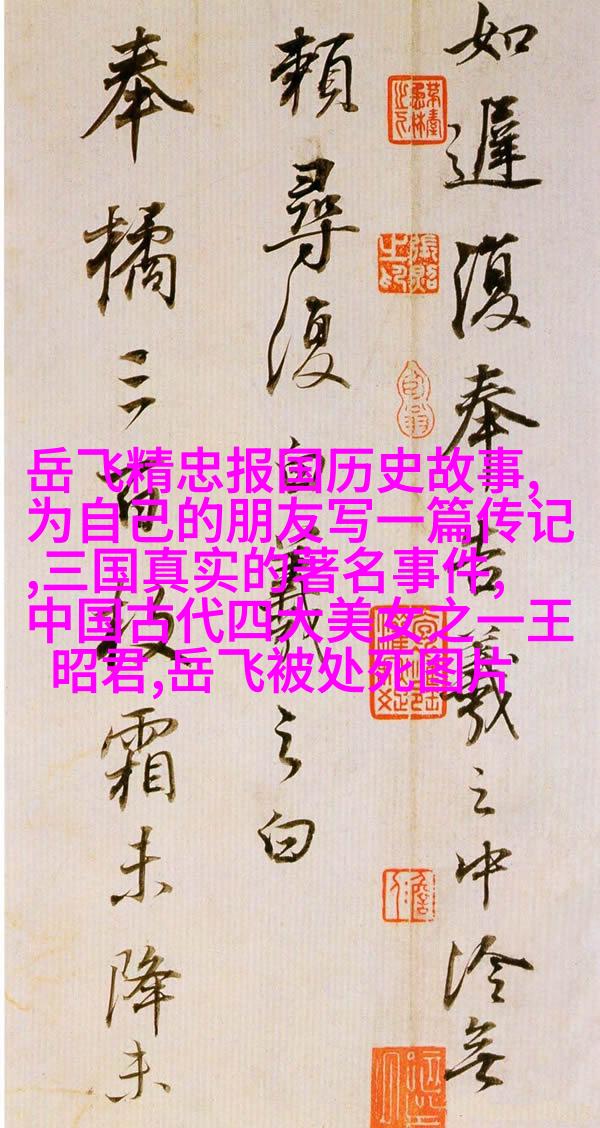 如遲復奉告羲之中冷無
賴尋復白羲之白
奉橘三百枚霜未降未
岳飞精忠报国历史故事,
为自己的朋友写一篇传记
,三国真实的著名事件,
中国古代四大美女之一王
昭君,岳飞被处死图片